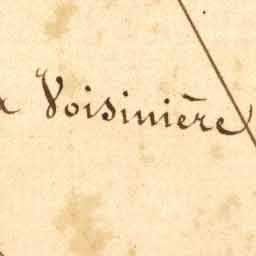 Voisinière